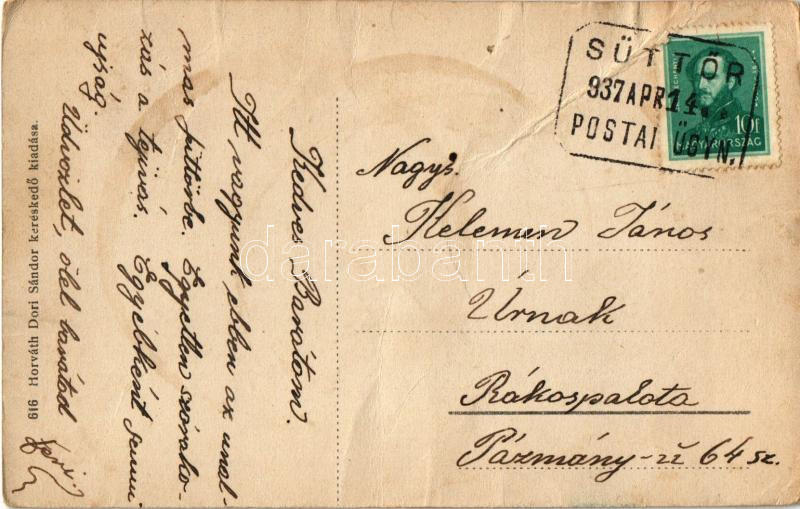 Kedves Barátom.
Itt vagyunk ebben az unal-
mas füttörbe. Egyetlen szórako-
zás a tejivás. Egyébként semmi
ujság.
Üdvözlet, ölel barátod
Feri
616 Horváth Dori Sándor kereskedő kiadása.
SÜTTŐR
937 APR 14.
POSTAI ÜGYN.
10f
MAGYARORSZÁG
Nagys.
Kelemen János
Úrnak
Rákospalota
Pázmány-ú 64 sz.
darabanth